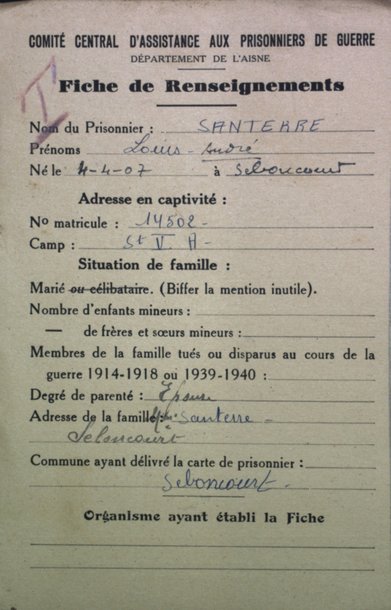 COMITÉ CENTRAL D'ASSISTANCE AUX PRISONNIERS DE GUERRE
DÉPARTEMENT DE L'AISNE
Fiche de Renseignements
Nom du Prisonnier : SANTERRE
Prénoms Louis - André
Né le 4-4-07 à Seboncourt
Adresse en captivité :
No matricule : 14502 -
Camp : St V. A -
Situation de famille :
Marié ou célibataire. (Biffer la mention inutile).
Nombre d'enfants mineurs :
— de frères et sœurs mineurs :
Membres de la famille tués ou disparus au cours de la
guerre 1914-1918 ou 1939-1940 :
Degré de parenté : Epouse
Adresse de la famille : Mme Santerre -
Seboncourt
Commune ayant délivré la carte de prisonnier :
Seboncourt.
Organisme ayant établi la Fiche